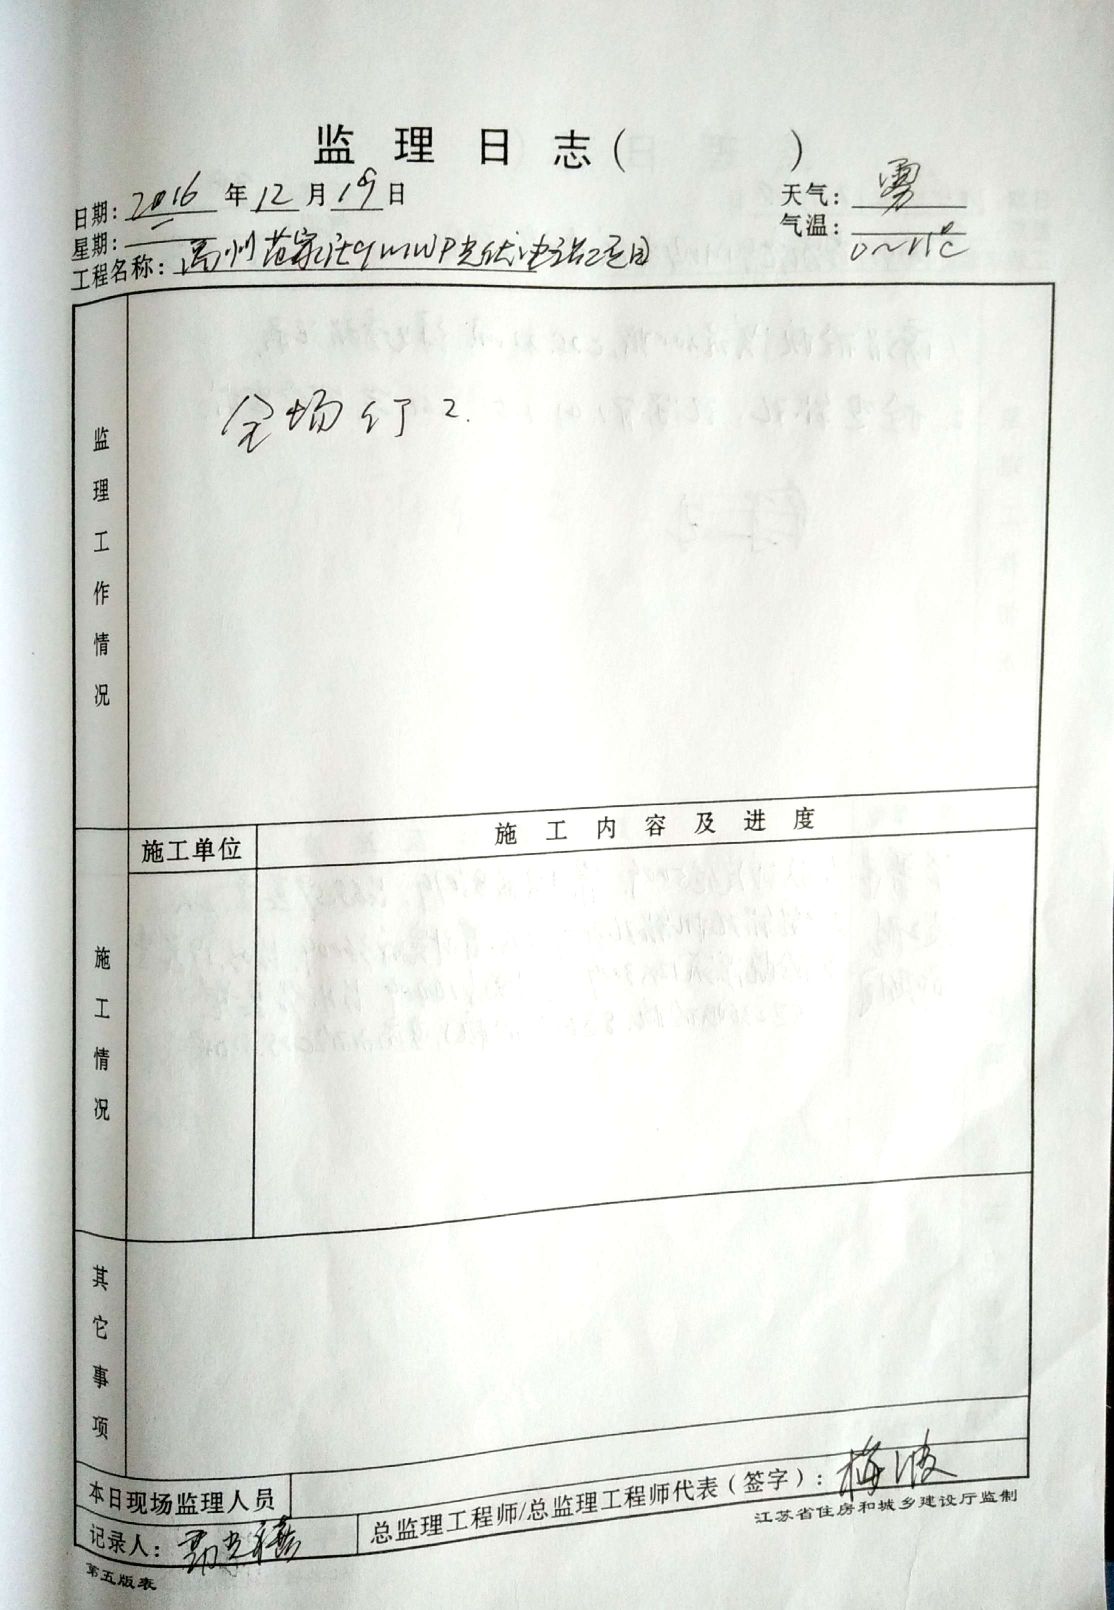 监理日志( )
日期: 2016 年 12 月 19 日
天气: 雾
星期: 一
气温: 0~15℃
工程名称: 高州范家庄9MWP光伏电站项目
监理工作情况
全场停工.
施工单位
施工内容及进度
施工情况
其它事项
本日现场监理人员
总监理工程师/总监理工程师代表(签字): 梅波
记录人:
江苏省住房和城乡建设厅监制
第五版表